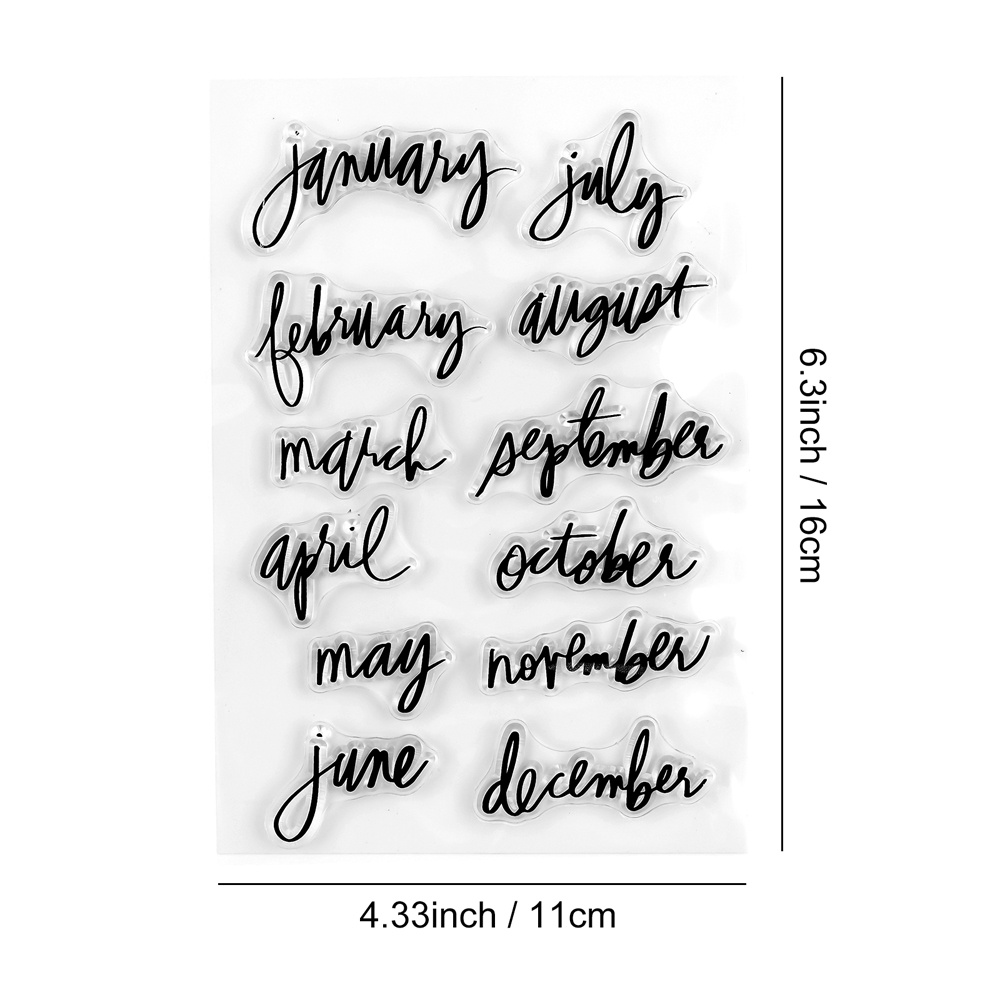 january
july
february
august
march
september
april
october
may
november
june
december
6.3inch / 16cm
4.33inch / 11cm